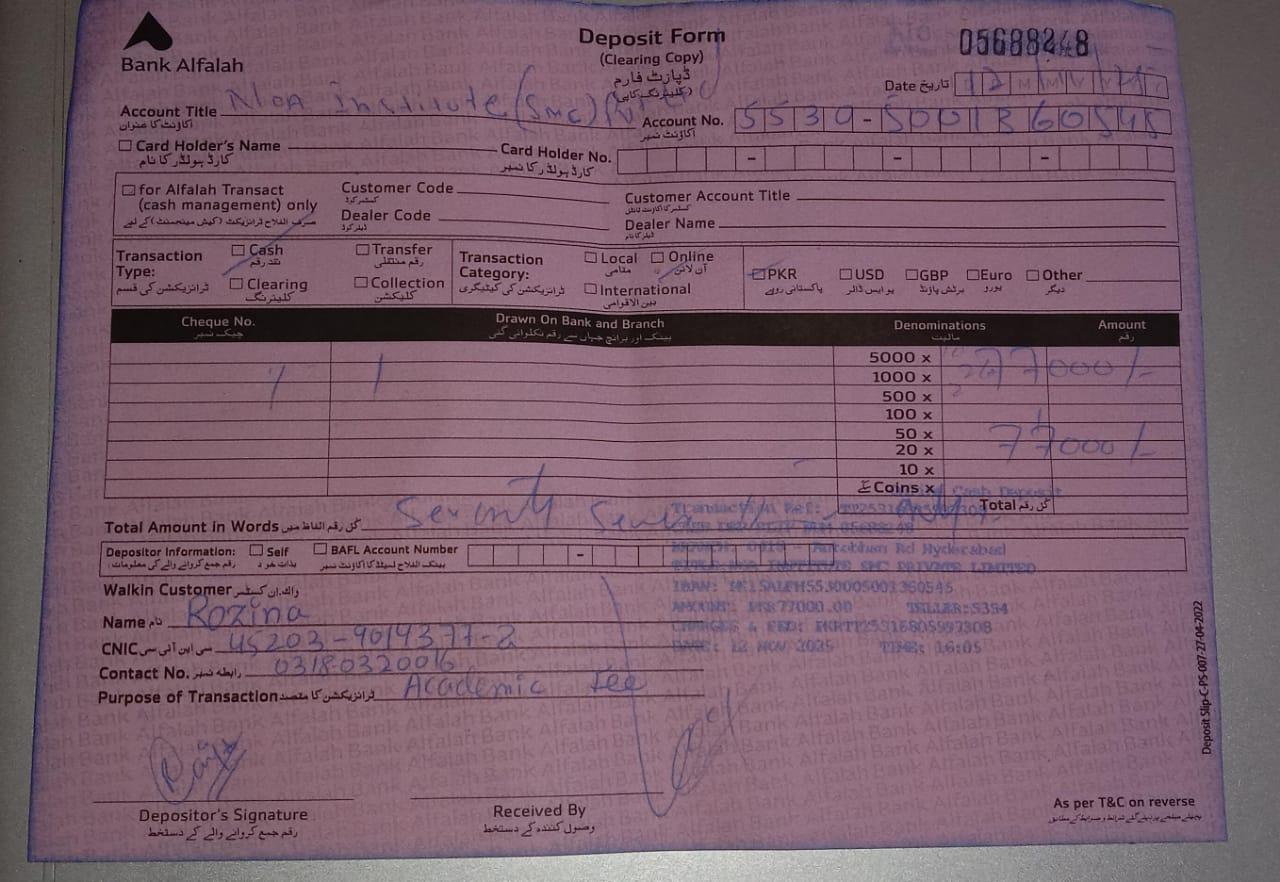 Bank Alfalah
Deposit Form
(Clearing Copy)
ڈپازٹ فارم
(کلیئرنگ کاپی)
05688248
Date تاریخ 12
Account Title Institute (SMC)
اکاؤنٹ کا عنوان
Account No. 5530-5001360545
اکاؤنٹ نمبر
Card Holder's Name
کارڈ ہولڈر کا نام
Card Holder No.
کارڈ ہولڈر کا نمبر
for Alfalah Transact
(cash management) only
صرف الفلاح ٹرانزیکٹ (کیش مینجمنٹ) کے لیے
Customer Code
کسٹمر کوڈ
Customer Account Title
Dealer Code
ڈیلر کوڈ
Dealer Name
ڈیلر کا نام
Transaction Type:
ٹرانزیکشن کی قسم
Cash
نقد رقم
Transfer
رقم منتقلی
Clearing
کلیئرنگ
Collection
کلیکشن
Transaction Category:
ٹرانزیکشن کی کیٹیگری
Local
مقامی
Online
آن لائن
International
بین الاقوامی
PKR
پاکستانی روپے
USD
یو ایس ڈالر
GBP
برٹش پاؤنڈ
Euro
یورو
Other
دیگر
Cheque No.
چیک نمبر
Drawn On Bank and Branch
بینک اور برانچ جہاں سے رقم نکلوائی گئی
Denominations
مالیت
Amount
رقم
5000 x
1000 x 77000/-
500 x
100 x
50 x 77000/-
20 x
10 x
Coins x
Total کل رقم
Total Amount in Words کل رقم الفاظ میں Seventy Seven only
Cash Deposit
Transaction Ref:
05688248
Autobhan Rd Hyderabad
INSTITUTE SMC PRIVATE LIMITED
AMOUNT: PKR77000.00 TELLER:5354
DATE: 12 NOV 2025 TIME: 16:05
Depositor Information:
رقم جمع کروانے والے کی معلومات:
Self
بذات خود
BAFL Account Number
بینک الفلاح لمیٹڈ کا اکاؤنٹ نمبر
Walkin Customer واک ان کسٹمر
Name نام Rozina
CNIC سی این آئی سی 45203-9014377-2
Contact No. رابطہ نمبر 03180320016
Purpose of Transaction ٹرانزیکشن کا مقصد Academic fee
Depositor's Signature
رقم جمع کروانے والے کے دستخط
Received By
وصول کنندہ کے دستخط
As per T&C on reverse
Deposit Slip-C-PS-007-27-04-2022